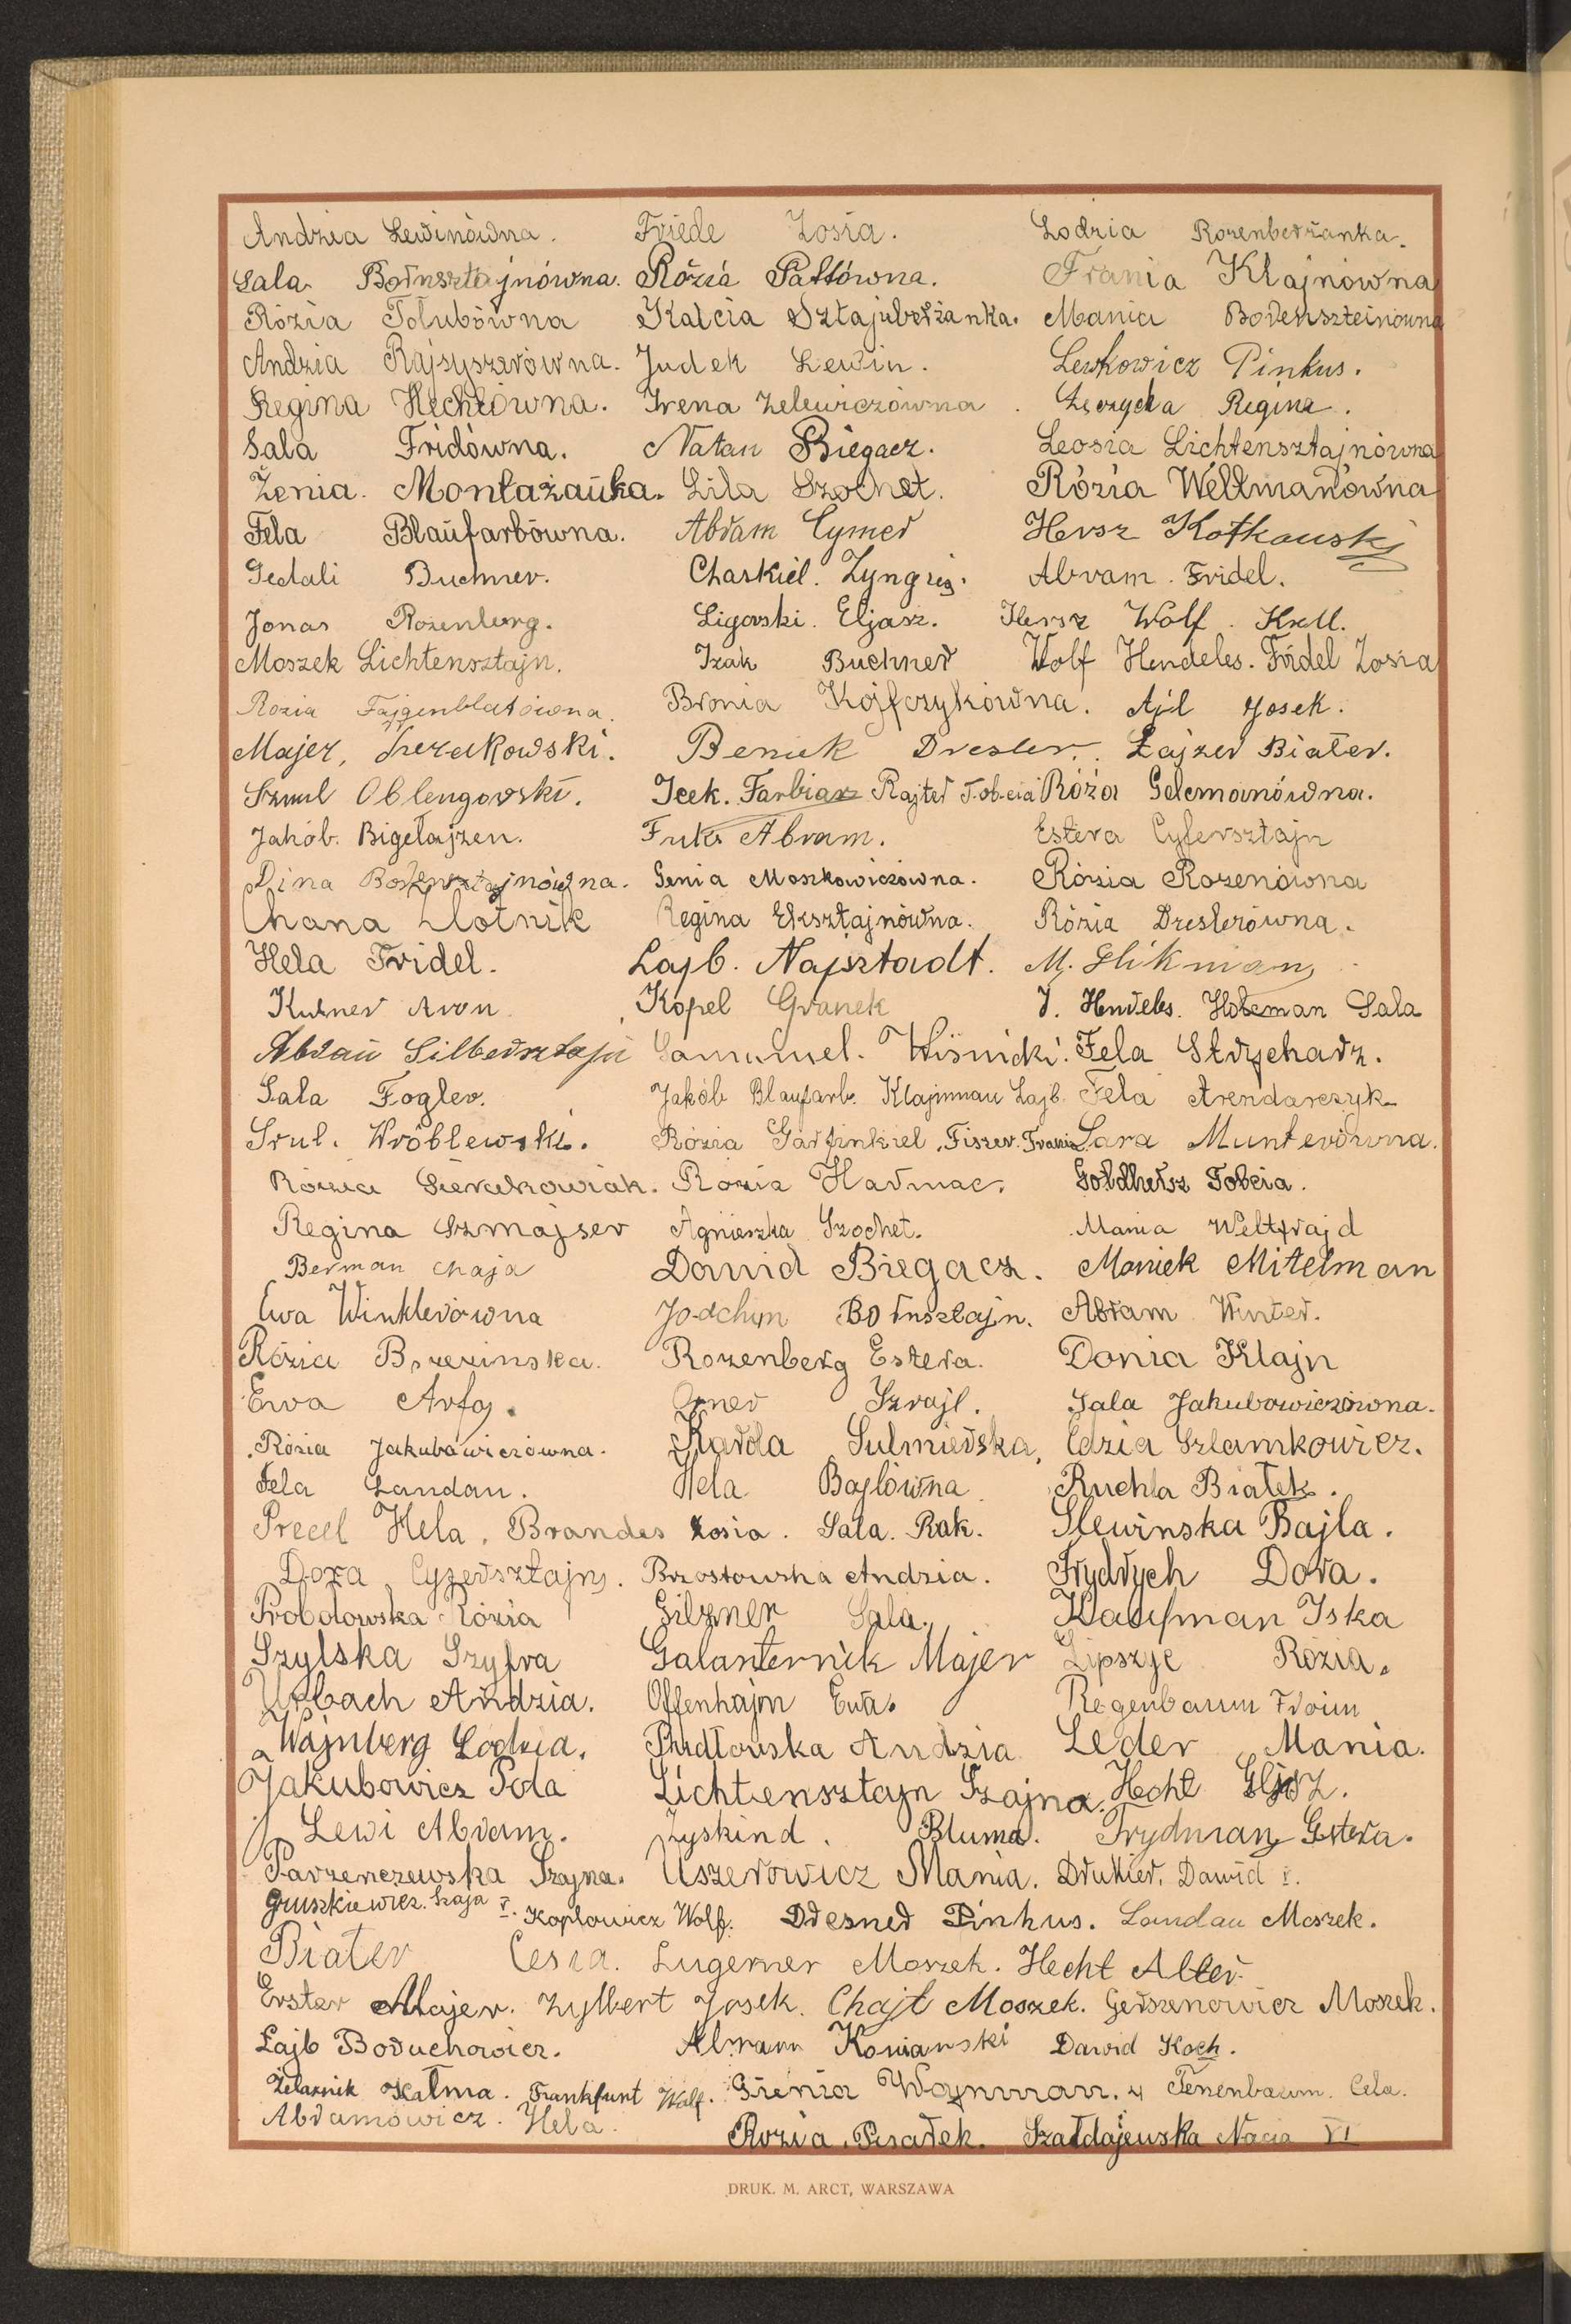 Andzia Lewinówna. Friede Zosia. Lodzia Rozenberżanka.
Sala Bornsztajnówna. Rózia Pattówna. Frania Klajnówna
Rózia Tolubówna Kalcia Sztajnberżanka. Mania Borenszteinówna
Andzia Rajsyszerówna. Judek Lewin. Lewkowicz Pinkus.
Regina Hechtówna. Irena Zelewiczówna. Łęczycka Regina.
Sala Fridówna. Natan Biegacz. Leosia Lichtensztajnówna
Żenia. Montażanka. Lila Szochet. Rózia Weltmanówna
Fela Blaufarbówna. Abram Cymer Hersz Kotkowski
Gedali Buchner. Chaskiel. Zyngier. Abram. Fridel.
Jonas Rozenberg. Ligorski. Eljasz. Hersz Wolf. Krell.
Moszek Lichtensztajn. Izak Buchner Wolf Hendeles. Fridel Zosia
Rozia Fajgenblatówna. Bronia Kojfczykówna. Ajl Josek.
Majer, Sieradkowski. Beniek Dresler. Łajzer Biater.
Szmul Oblengorski. Icek. Farbiarz Rajter Tobcia Róża Gelemanówna.
Jakób. Bigelajzen. Fuks Abram. Estera Cyfersztajn
Dina Borensztajnówna. Genia Moszkowiczówna. Rózia Rozenówna
Chana Złotnik Regina Eksztajnówna. Rózia Dreslerówna.
Hela Fridel. Lajb. Najsztadt. M. Glikman
Kusner Aron Kopel Granek J. Hendeles. Holcman Sala
Abram Silbersztajn Samumel. Wiśnicki. Fela Strycharz.
Sala Fogler. Jakób Blaufarb. Klajnman Lajb. Fela Arendarczyk
Srul. Wróblewski. Rózia Garfinkiel. Fiszer. Frania Sara Munterówna.
Rózia Sieradkowiak. Rózia Harmac. Goldhersz Tobcia.
Regina Szmajser Agnieszka Szochet. Mania Weltfrajd
Berman Chaja Dawid Biegacz. Moniek Mitelman
Ewa Winklerówna Jochym Bornsztajn. Abram Winter.
Rózia Brzezinska. Rozenberg Estera. Donia Klajn
Ewa Arfa. Orner Szrajl. Sala Jakubowiczówna.
Rózia Jakubowiczówna. Karola Sulmierska, Edzia Szlamkowicz.
Fela Landau. Hela Bajlówna Ruchla Białek.
Precel Hela. Brandes Zosia. Sala. Rak. Slewinska Bajla.
Dora Cyzersztajn. Brzostowska Andzia. Frydrych Dora.
Probolowska Rózia Gilzner Sala. Kaufman Iska
Szylska Szyfra Galanternik Majer Lipszyc Rózia.
Urbach Andzia. Offenhajm Ewa. Regenbaum Froim
Wajnberg Lodzia. Pudłowska Andzia Leder Mania.
Jakubowicz Pola Lichtensztajn Szajna. Hecht Eljasz.
Lewi Abram. Zyskind. Bluma. Frydman Estera.
Parzenczewska Szajna. Uszerowicz Mania. Drukier. Dawid I.
Gruszkiewicz. Szaja V. Koplowicz Wolf. Dresner Pinkus. Landau Moszek.
Biater Cesia. Lugerner Moszek. Hecht Alter.
Erster Majer. Zylbert Josek. Chajt Moszek. Gerszenowicz Moszek.
Łajb Boruchowicz. Abram Koniarski Dawid Koch.
Żelaznik Kalma. Frankfurt Wolf. Gienia Wajnman. 4 Tenenbaum. Cela.
Abramowicz. Hela.
Rozia. Pisarek. Szałdajewska Nacia VI
DRUK. M. ARCT, WARSZAWA